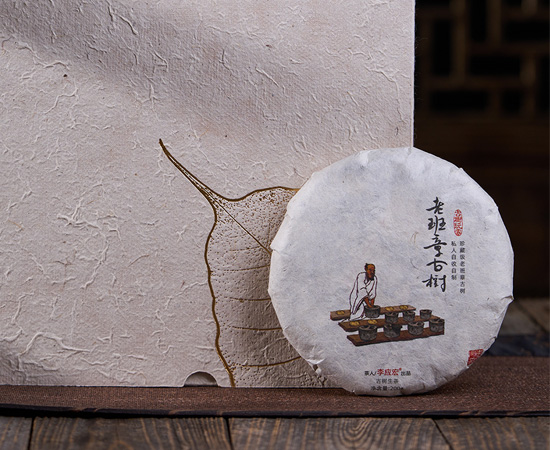 老班章古树
珍藏级老班章古树
私人自收自制
茶人/李应宏出品
古树生茶
净含量:200g